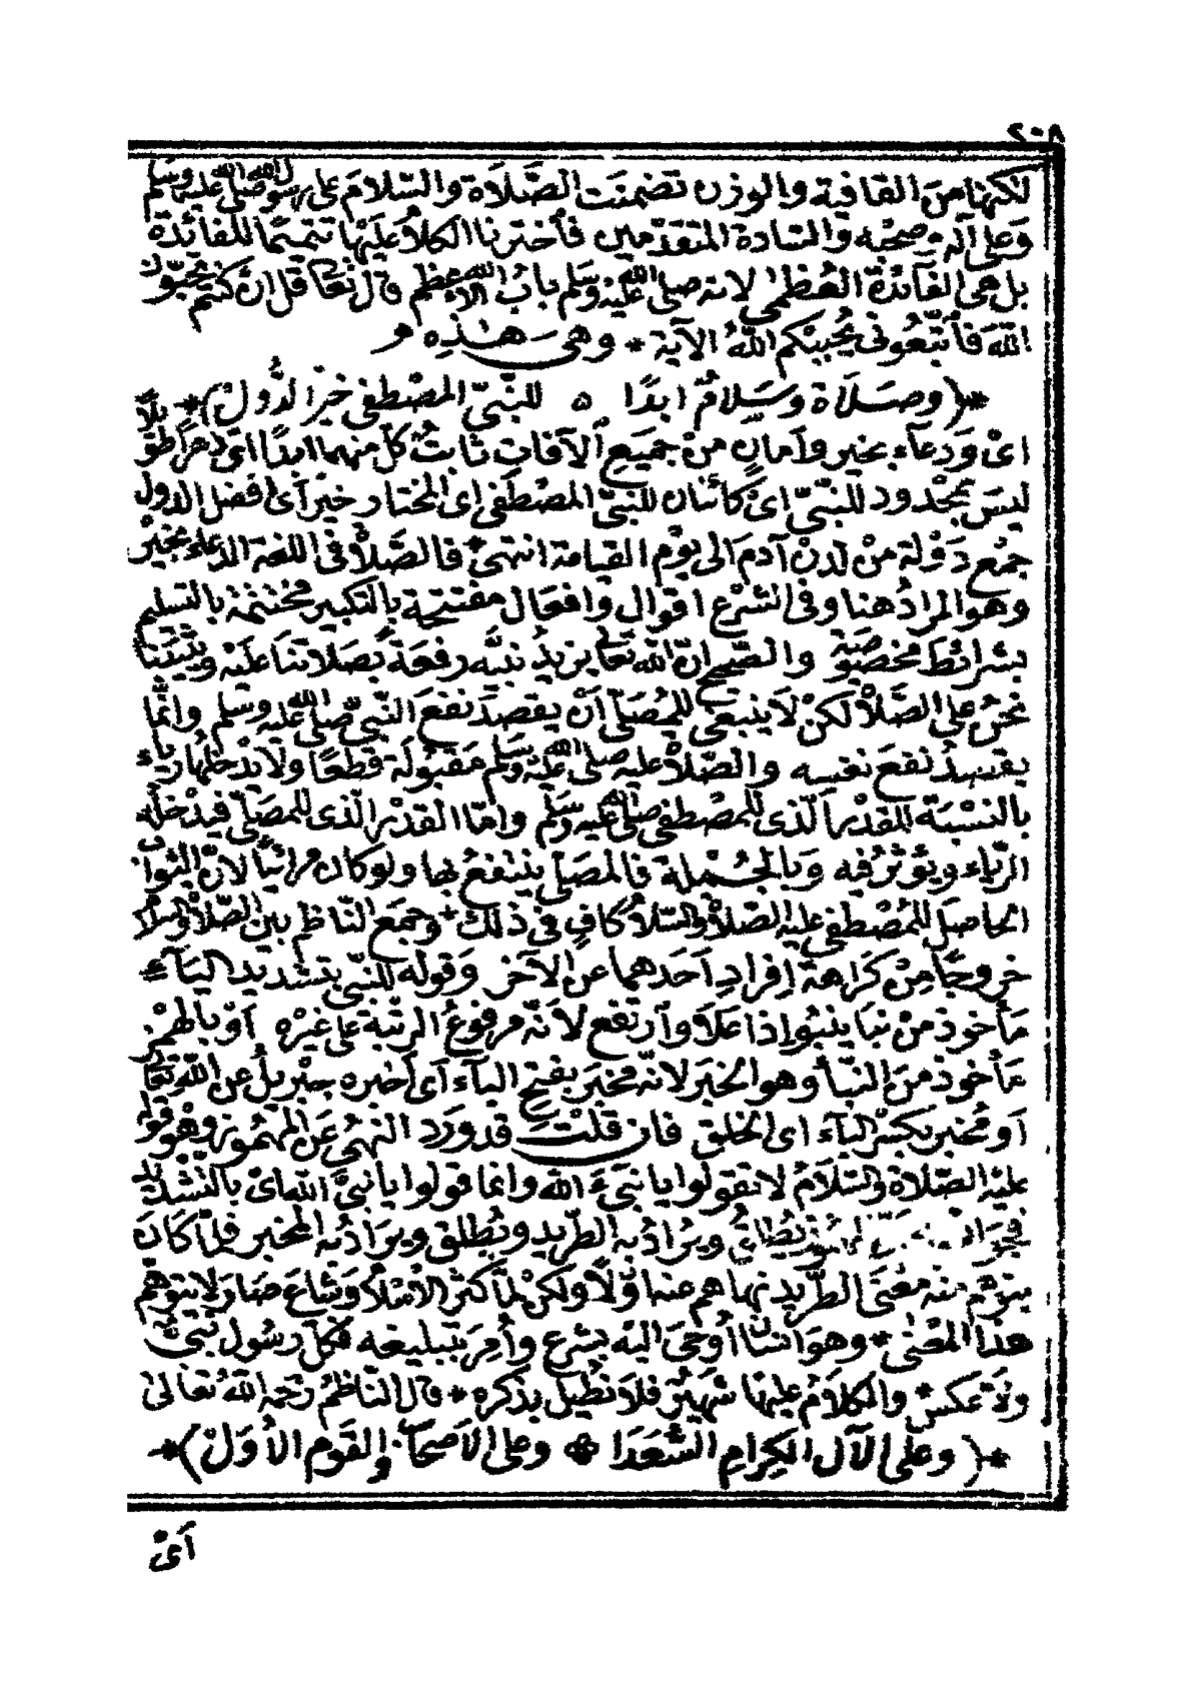 ٢٠٨
لكنها من القافية والوزن تضمنت الصّلاة والسّلام على رسول الله صلى الله عليه وسلم
وعلى آله وصحبه والسّادة المتقدّمين فأخترنا الكلام عليها تتميمًا للفائدة
بل هى الفآئدة العُظمى لانه صلى الله عليه وسلم باب الله الاعظم قال تعا قل ان كنتم تحبّون
الله فأتّبعُونى يُحببْكم اللهُ الآية * وهى هٰذِه
*(وصَلَاة وسَلامٌ ابدًا ۞ للنّبىّ المصْطفى خيْر الدُّول)*
اىْ ودعآء بخير وأمان منْ جميَع الآفات ثابتٌ كلّ منهما ابدًا اىْ دهرًا طويلًا
ليسَ بمحْدود للنّبىّ اىْ كائنان للنبىّ المصْطفى اى المختار خيْر اى افضل الدول
جمْع دَوْلة منْ لدنْ آدمَ الى يوْم القيامة انتهىْ * فالصّلاة فى اللغة الدعاء بخيْر
وهو المرادُ هنا وفى الشرْع اقوال وافعال مفتتحة بالتكبير مختتمة بالتسليم
بشرائط مخصُوصَة والصّحيح انّ الله تعا يزيدُ نبيّه رفعَة بصَلاتنا عليْه ويثيبنا
نحْنُ على الصَّلاة لكنْ لا ينبغى للمُصَلّى أنْ يقصد نفعَ النّبىّ صلى الله عليه وسلم وانّما
يقصدُ نفعَ نفسِه والصّلاة عليه صلى الله عليْه وسلم مَقبُولة قطعًا ولا يدْخلها رياء
بالنسْبَة للقدْر الّذى للمصْطفى صلى الله عليه وسلم وامّا القدْر الّذى للمصَلّى فيدْخله
الرّياء ويؤثرُ فيه وَبالجُمْلة فالمصَلى ينتفعُ بها ولو كان مرائيًا لانّ الثواب
الحاصل للمُصْطفى عليه الصّلاة والسّلام كافٍ فى ذلك * وجمَع النّاظم بين الصّلاة والسلام
خروجًا منْ كَرَاهة إفرادِ أحَدهما عن الآخر وَقوله للنّبىّ بتشديد اليَآء
مَأخوذ منْ نبَا ينبُو إذا عَلَا وأرتفع لانّه مرفوعُ الرتبة على غيْره أوْ بالهمْز
مَأخوذ منَ النّبأ وهو الخبر لانّه مخبَر بفتح البآء أى أخبره جبْريلُ عن الله تعا
أو مُخبر بكسْر البآء اى الخلق فان قلْتَ قد ورَد النهىُ عَن المهمُوز وهُو قوله
عليْه الصّلاة والسّلامُ لا تقولوا يا نبىءَ الله وانما قولوا يا نبىَّ الله اىْ بالتّشديد
ويُرادُ به الطّريد ويُطلق ويرَادُ به المُخبر فلمّا كان
يتوَهّم منه معْنَى الطّريد نهاهم عنه أوّلًا ولكنْ لمّا كثرَ الأسْلام وَشاعَ صَار لا يتوَهّم
هذا المعْنى * وهوَ انسَان أُوحىَ اليْه بشرْع وأُمِرَ بتبليغه فكلّ رسُول نبىّ
ولا عكسَ * والكلامُ عليها شهيرٌ فلا نطيل بذكره * قال النّاظمُ رَحمه اللهُ تعَالىْ
*(وعلى الآل الكِرامِ السُّعَدَا ۞ وعلى الاصحاب والقَوم الأُوَلْ)*
أىْ